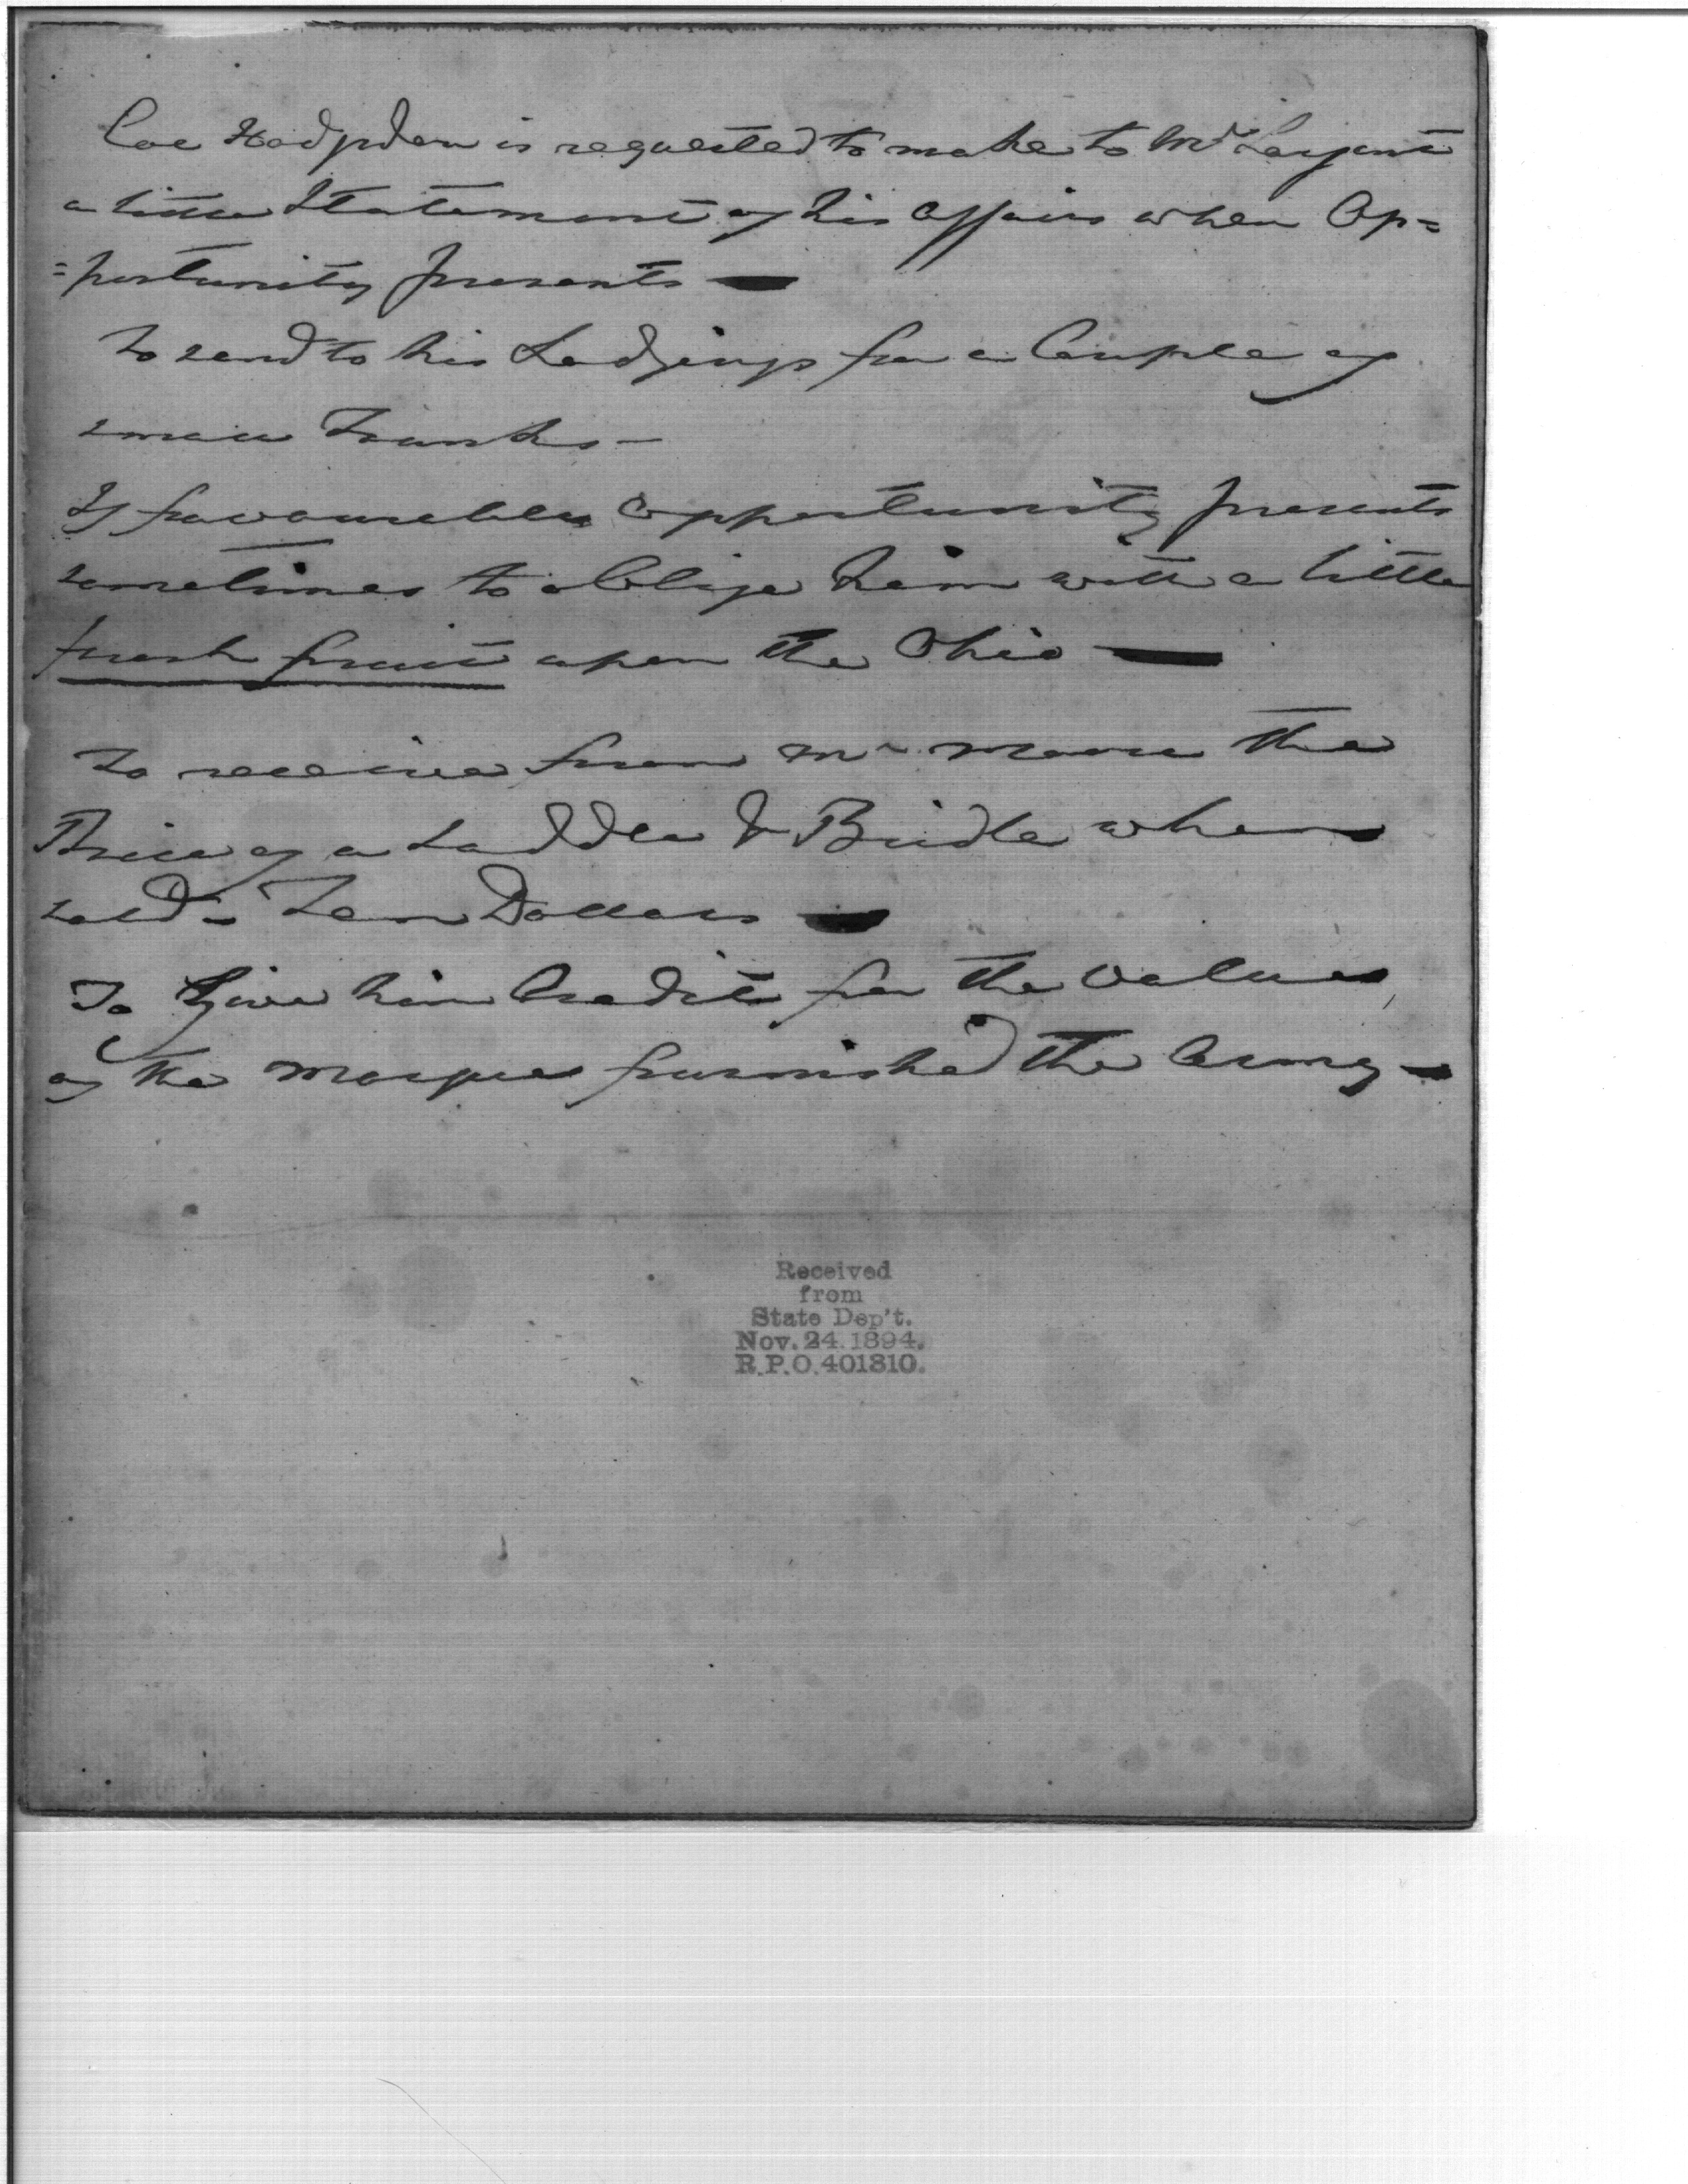 Col Hodgdon is requested to make to Mr Sargent
a little Statement of his affairs when Op=
=portunity presents —
To send to his Lodgings for a Couple of
small Trunks —
If favourable opportunity presents
sometimes to oblige him with a little
fresh fruit upon the Ohio —
To receive from Mr Moore the
Price of a Saddle & Bridle when
sold – Ten Dollars —
To Give him Credit for the Value
of the Marquee furnished the Army —
Received
from
State Dep't.
Nov. 24. 1894.
R.P.O. 401310.